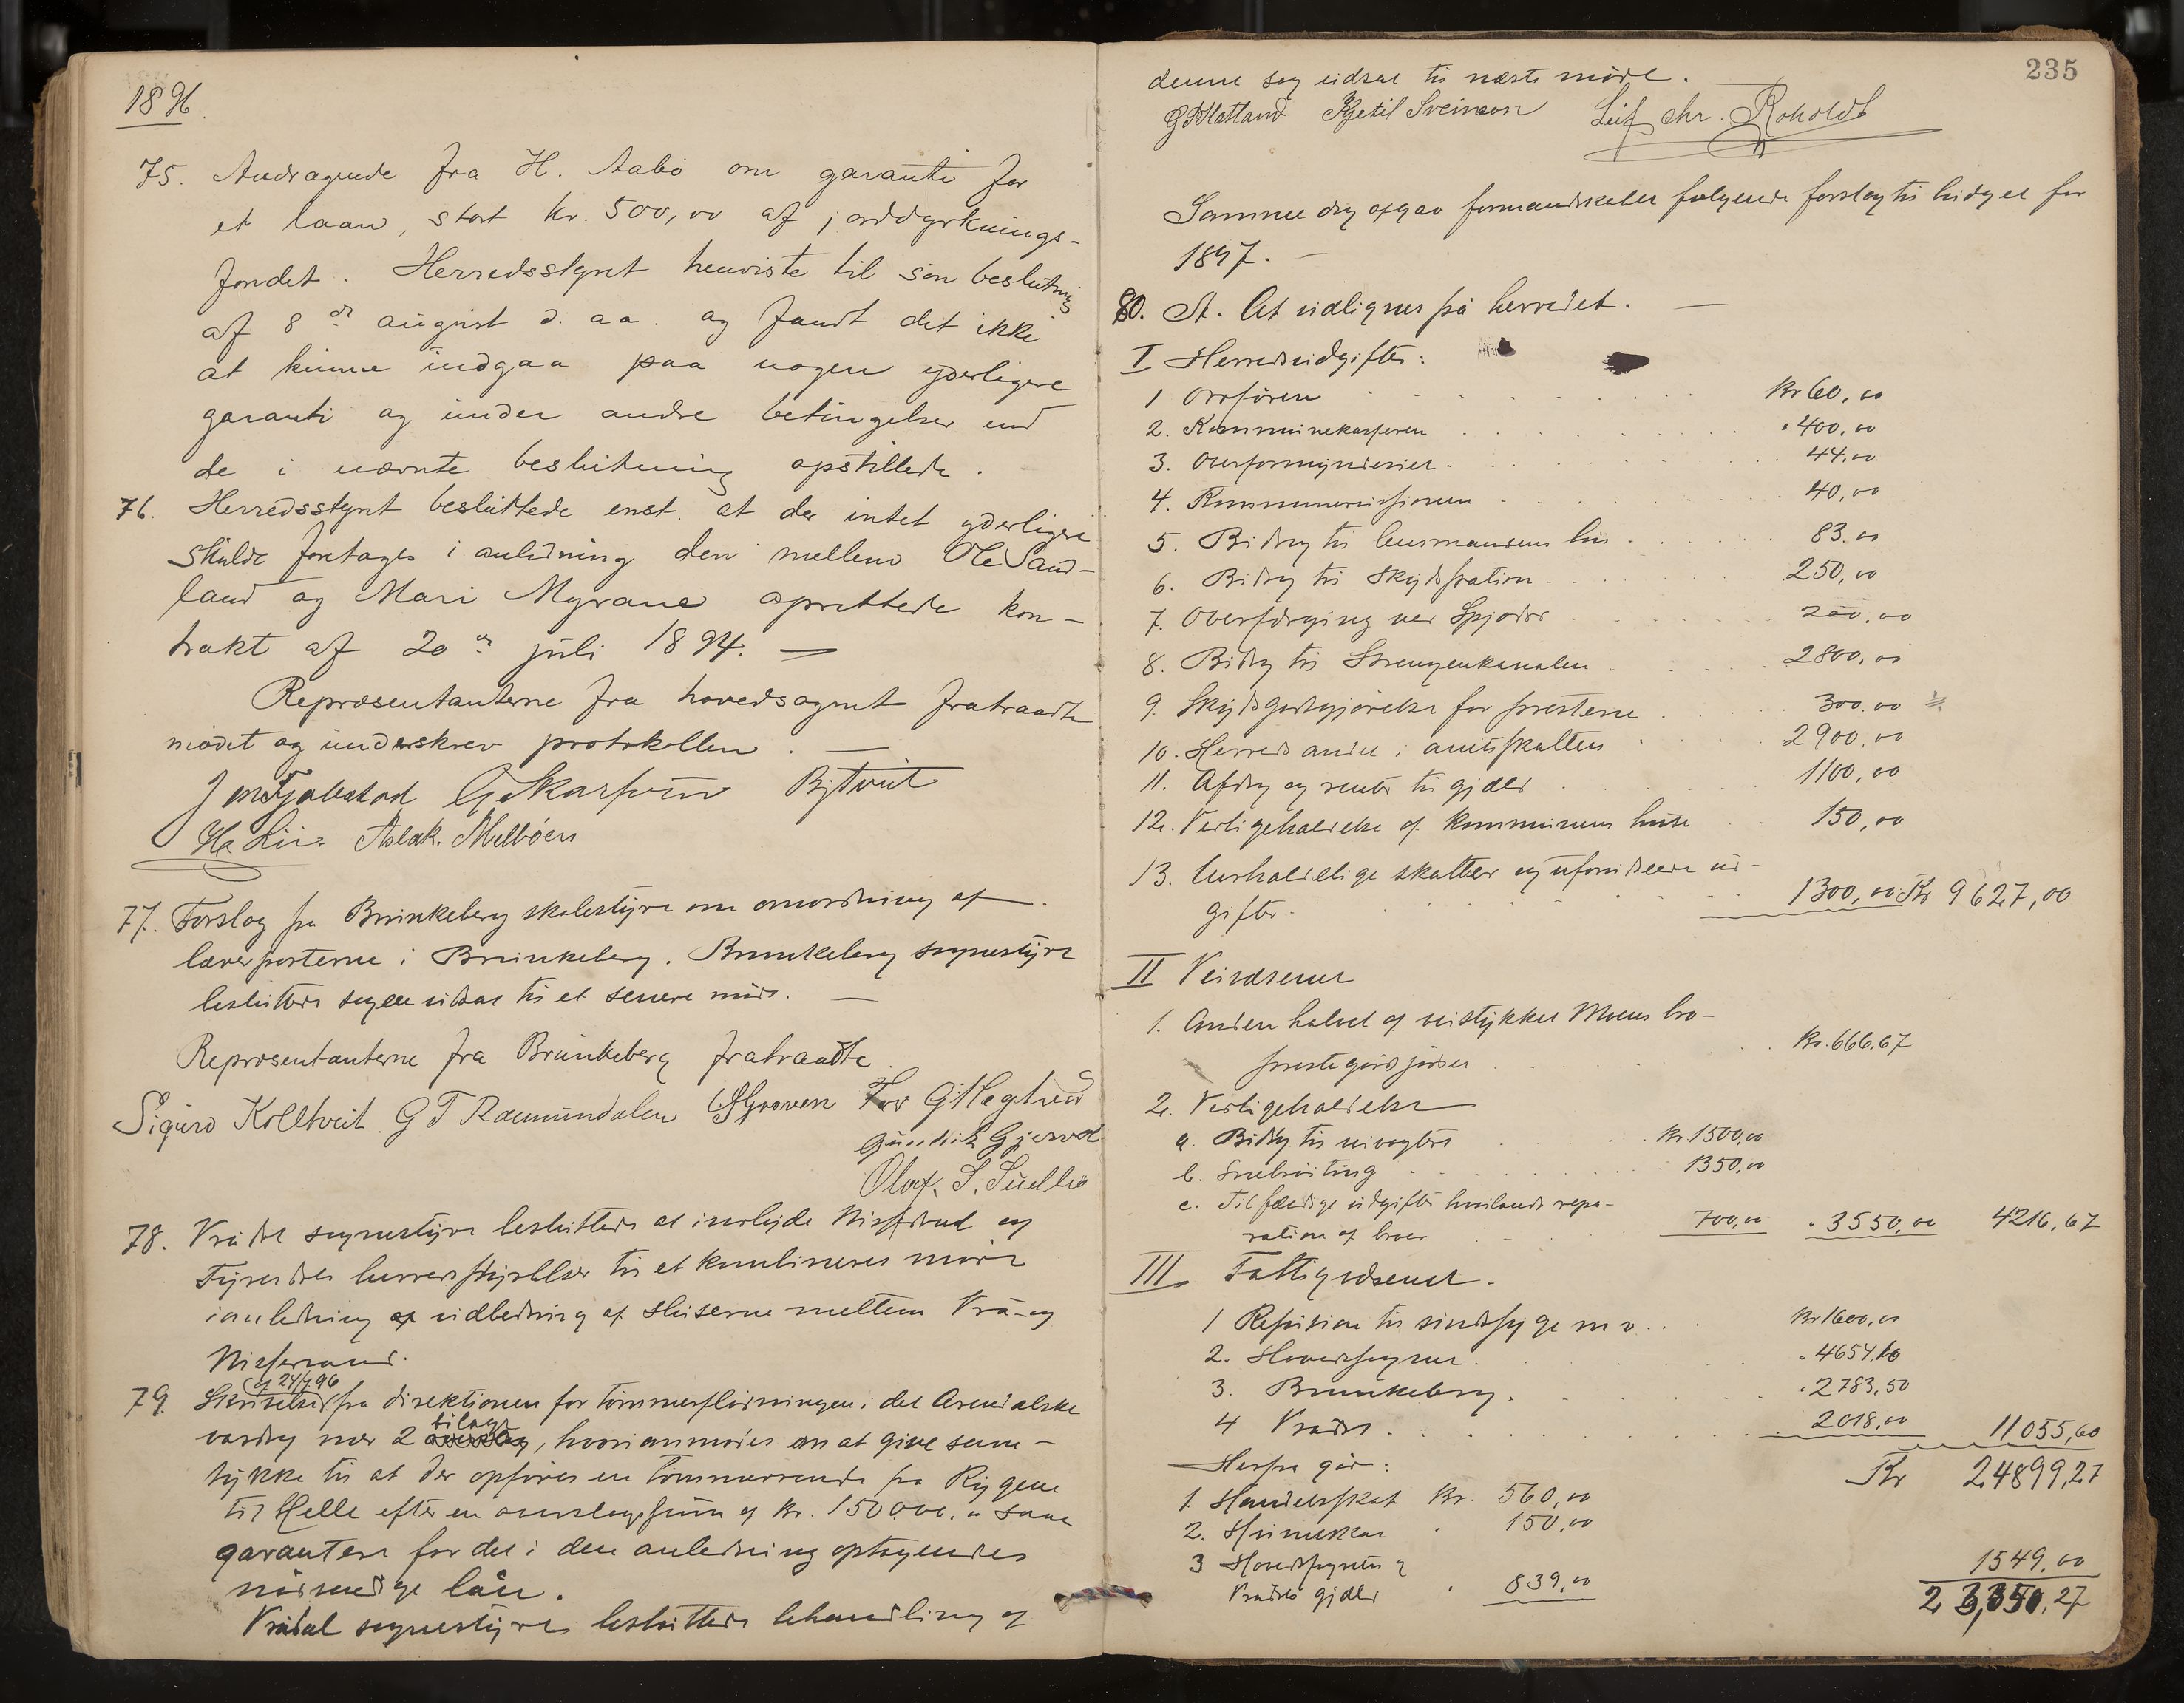 1896.
75. Andragende fra H. Aabø om garanti for
et laan, stort kr. 500,00 af jorddyrknings-
fondet. Herredsstyret henviste til sin beslutning
af 8de august d. aa. og fandt det ikke
at kunne indgaa paa nogen yderligere
garanti og under andre betingelser end
de i nævnte beslutning opstillede.
76. Herredsstyret besluttede enst. at der intet yderligere
skulde foretages i anledning den mellem Ole Sand-
land og Mari Myrane oprettede kon-
trakt af 20de juli 1894. —
Repræsentanterne fra hovedsognet fratraadte
mødet og underskrev protokollen. —
Aslak. Melbøen
77. Forslag fra Brunkeberg skolestyre om omordning af
lærerposterne i Brunkeberg. Brunkeberg sognestyre
besluttede sagen udsat til et senere møde. —
Repræsentanterne fra Brunkeberg fratraadte.
Sigurd Kolltveit. G T Raamundalen
Olav. S.
78. Vrådal sognestyre besluttede at indbyde Nissedal og
herredsstyrelser til et kombineret møde
i anledning af udbedring af sluserne mellem Vrå- og
Nisservand.
79. Skrivelse fra direktionen for tømmerflødningen i det Arendalske
af 24/7 96
vasdrag med 2 bilage, hvori anmodes om at give sam-
tykke til at der opføres en tømmerrende fra Rygene
til Helle efter en overslagssum af kr. 150000.00 samt
garantere for det i den anledning optagendes
nødvendige lån.
Vrådal sognestyre besluttede behandling af
235
denne sag udsat til næste møde.
Kjetil Sveinson Leif Chr. Roholdt
Samme dag afgav formandskabet følgende forslag til budget for
1897. —
80. A. At udlignes på herredet. —
I Herredsudgifter:
1 Ordføreren kr 60,00
2. Kommunekassereren " 400,00
3. Overformynderiet. 44,00
4. 40,00
5. Bidrag til lensmandens hus. 83.00
6. Bidrag til Skydsstation. 250,00
7. ved Spjodso 200,00
8. Bidrag til Strengenkanalen 2800,00
9. Skydsgodtgjørelse for presterne 300.00
10. Herreds andel i amtsskatten 2900.00
11. Afdrag og renter til gjæld 1100,00
12. Vedligeholdelse af kommunens huse 150,00
13. Uerholdelige skatter og uforudseede ud-
gifter. 1300,00 Kr 9627,00
II Veivæsenet
1. Anden halvdel af veistykket Moens bro-
prestegårds kr. 666.67
2. Vedligeholdelse
a. Bidrag til veivogtere kr. 1500,00
b. Snebrøiting 1350,00
c. Tilfældige udgifter hvoriblandt repa-
ration af broer 700,00 " 3550,00 4216,67
III. Fattigvæsenet.
1 Refusion til sindssyge m v. kr 1600,00
2. Hovedsognet. " 4654.10
3. Brunkeberg. " 2783,50
4 Vrådal. 2018,00 11055,60
Herfra går: Kr 24899,27
1. Handelsskat kr. 560,00
2. " 150,00
3 Hovedsognets og
Vrådals gjæld " 839,00 1549.00
23,350,27